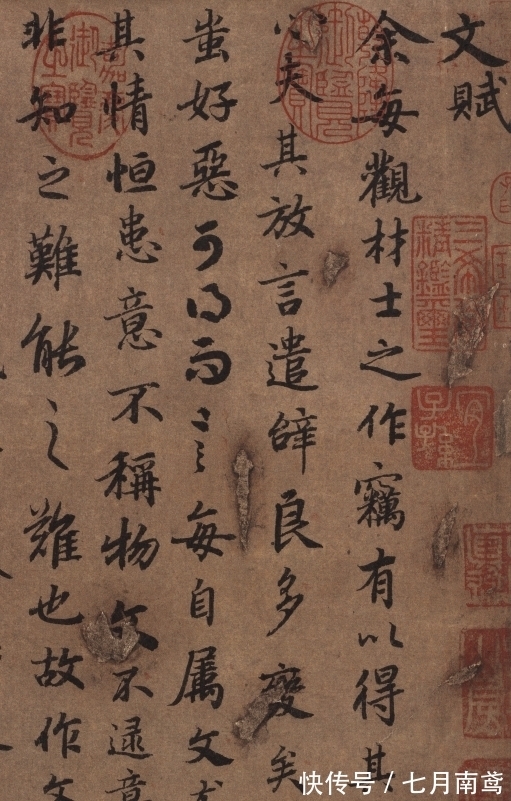 文賦
余每觀材士之作竊有以得其
心夫其放言遣辭良多變矣
蚩好惡可得而言每自属文尤
其情恒患意不稱物文不逮意
非知之難能之難也故作文
宜子孫
快传号 / 七月南鸢